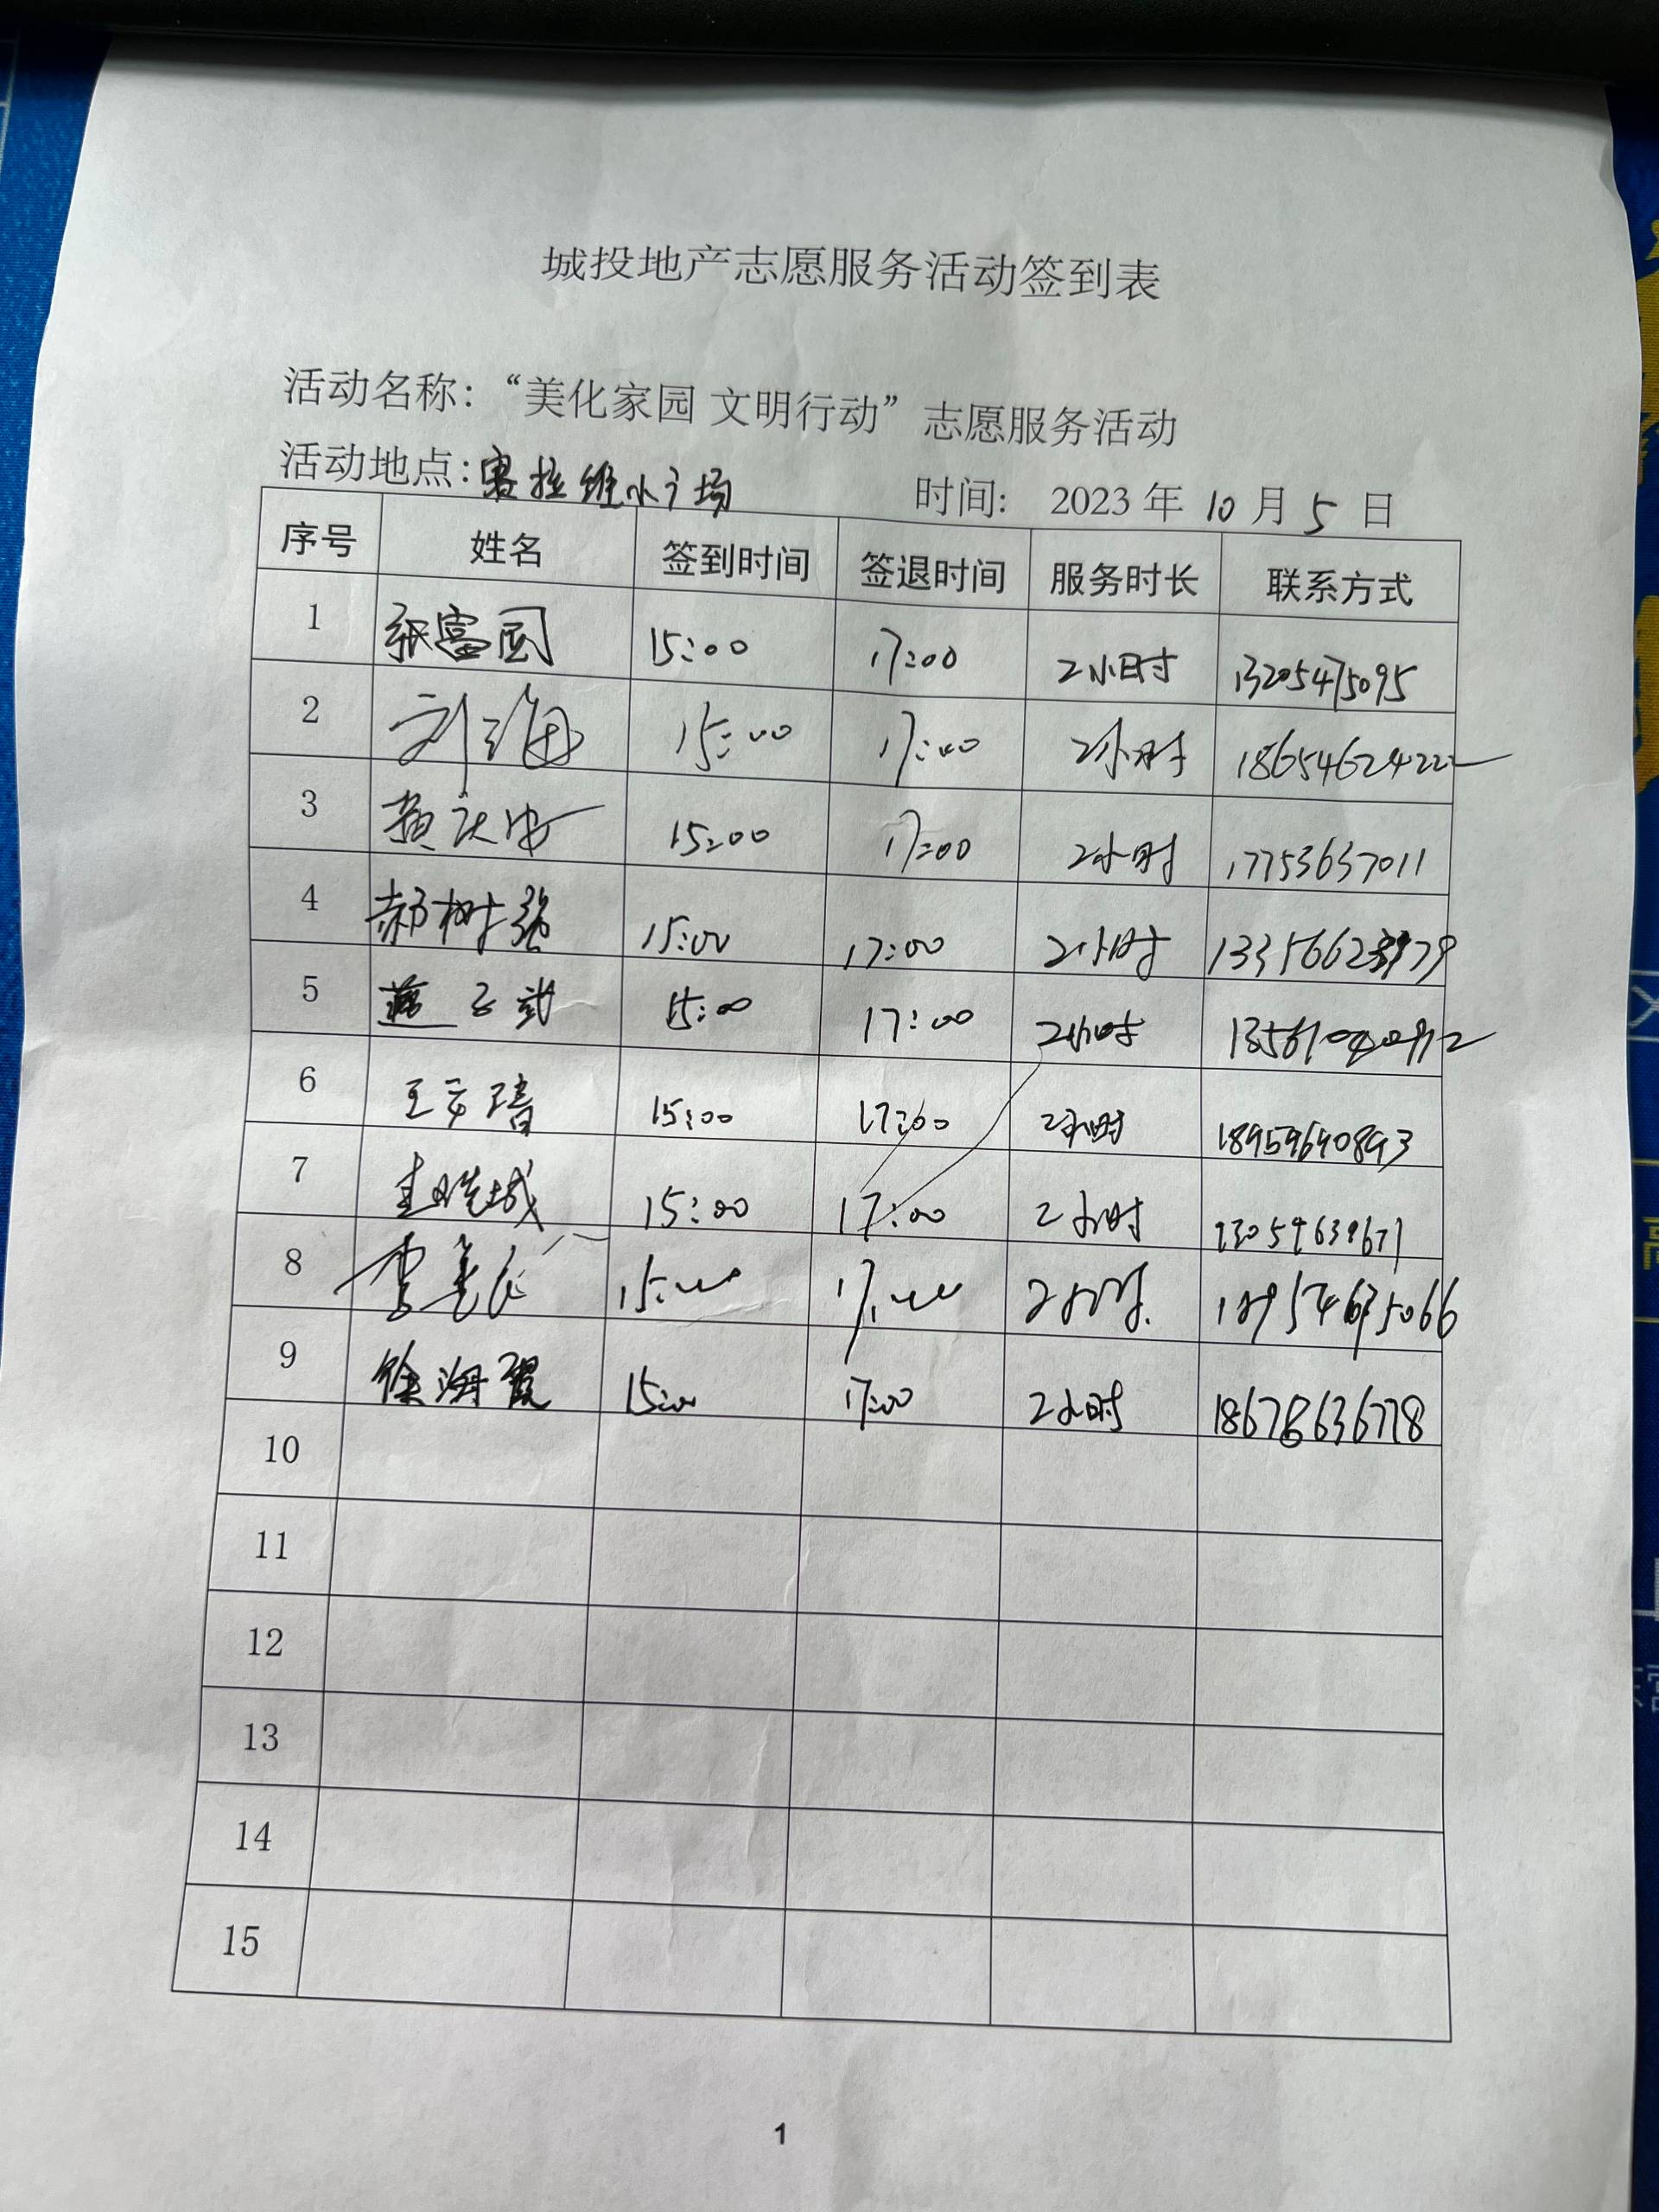 城投地产志愿服务活动签到表
活动名称：“美化家园 文明行动”志愿服务活动
活动地点：赛拉维小广场 时间： 2023 年 10 月 5 日
序号 姓名 签到时间 签退时间 服务时长 联系方式
1 张富国 15:00 17:00 2小时 13205475095
2 刘海 15:00 17:00 2小时 18654624222
3 黄 15:00 17:00 2小时 17753637011
4 郝树强 15:00 17:00 2小时
5 15:00 17:00 2小时
6 王 15:00 17:00 2小时
7 15:00 17:00 2小时
8 李 15:00 17:00 2小时
9 徐海霞 15:00 17:00 2小时 18678636778
10
11
12
13
14
15
1